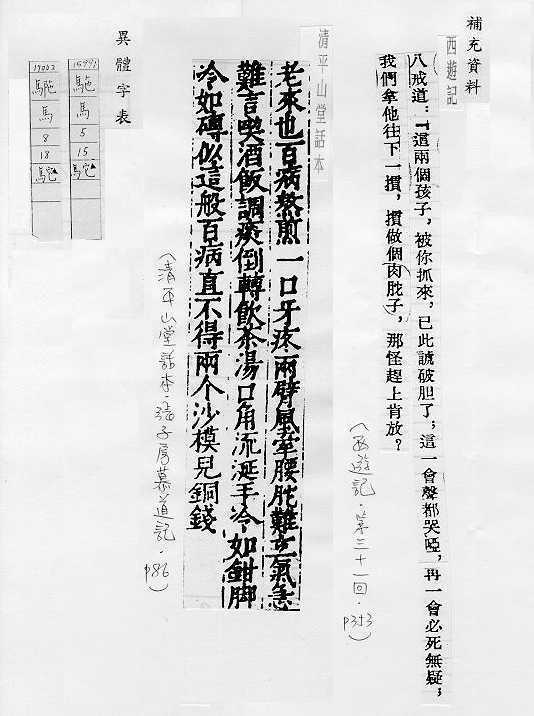 補充資料
西遊記
八戒道：「這兩個孩子，被你抓來，已此諕破胆了；這一會聲都哭啞，再一會必死無疑；
我們拿他往下一摜，摜做個肉肶子，那怪趕上肯放？
（西遊記．第三十一回．P353）
清平山堂話本
老來也百病熬煎一口牙疼兩臂風牽腰肶難立氣急
難言喫酒飯調痰倒轉飲茶湯口角流涎手冷如鉗脚
冷如磚似這般百病直不得兩个沙模兒銅錢
（清平山堂話本．張子房慕道記．P86）
異體字表
15991
馬
5
15
17002
馬
8
18